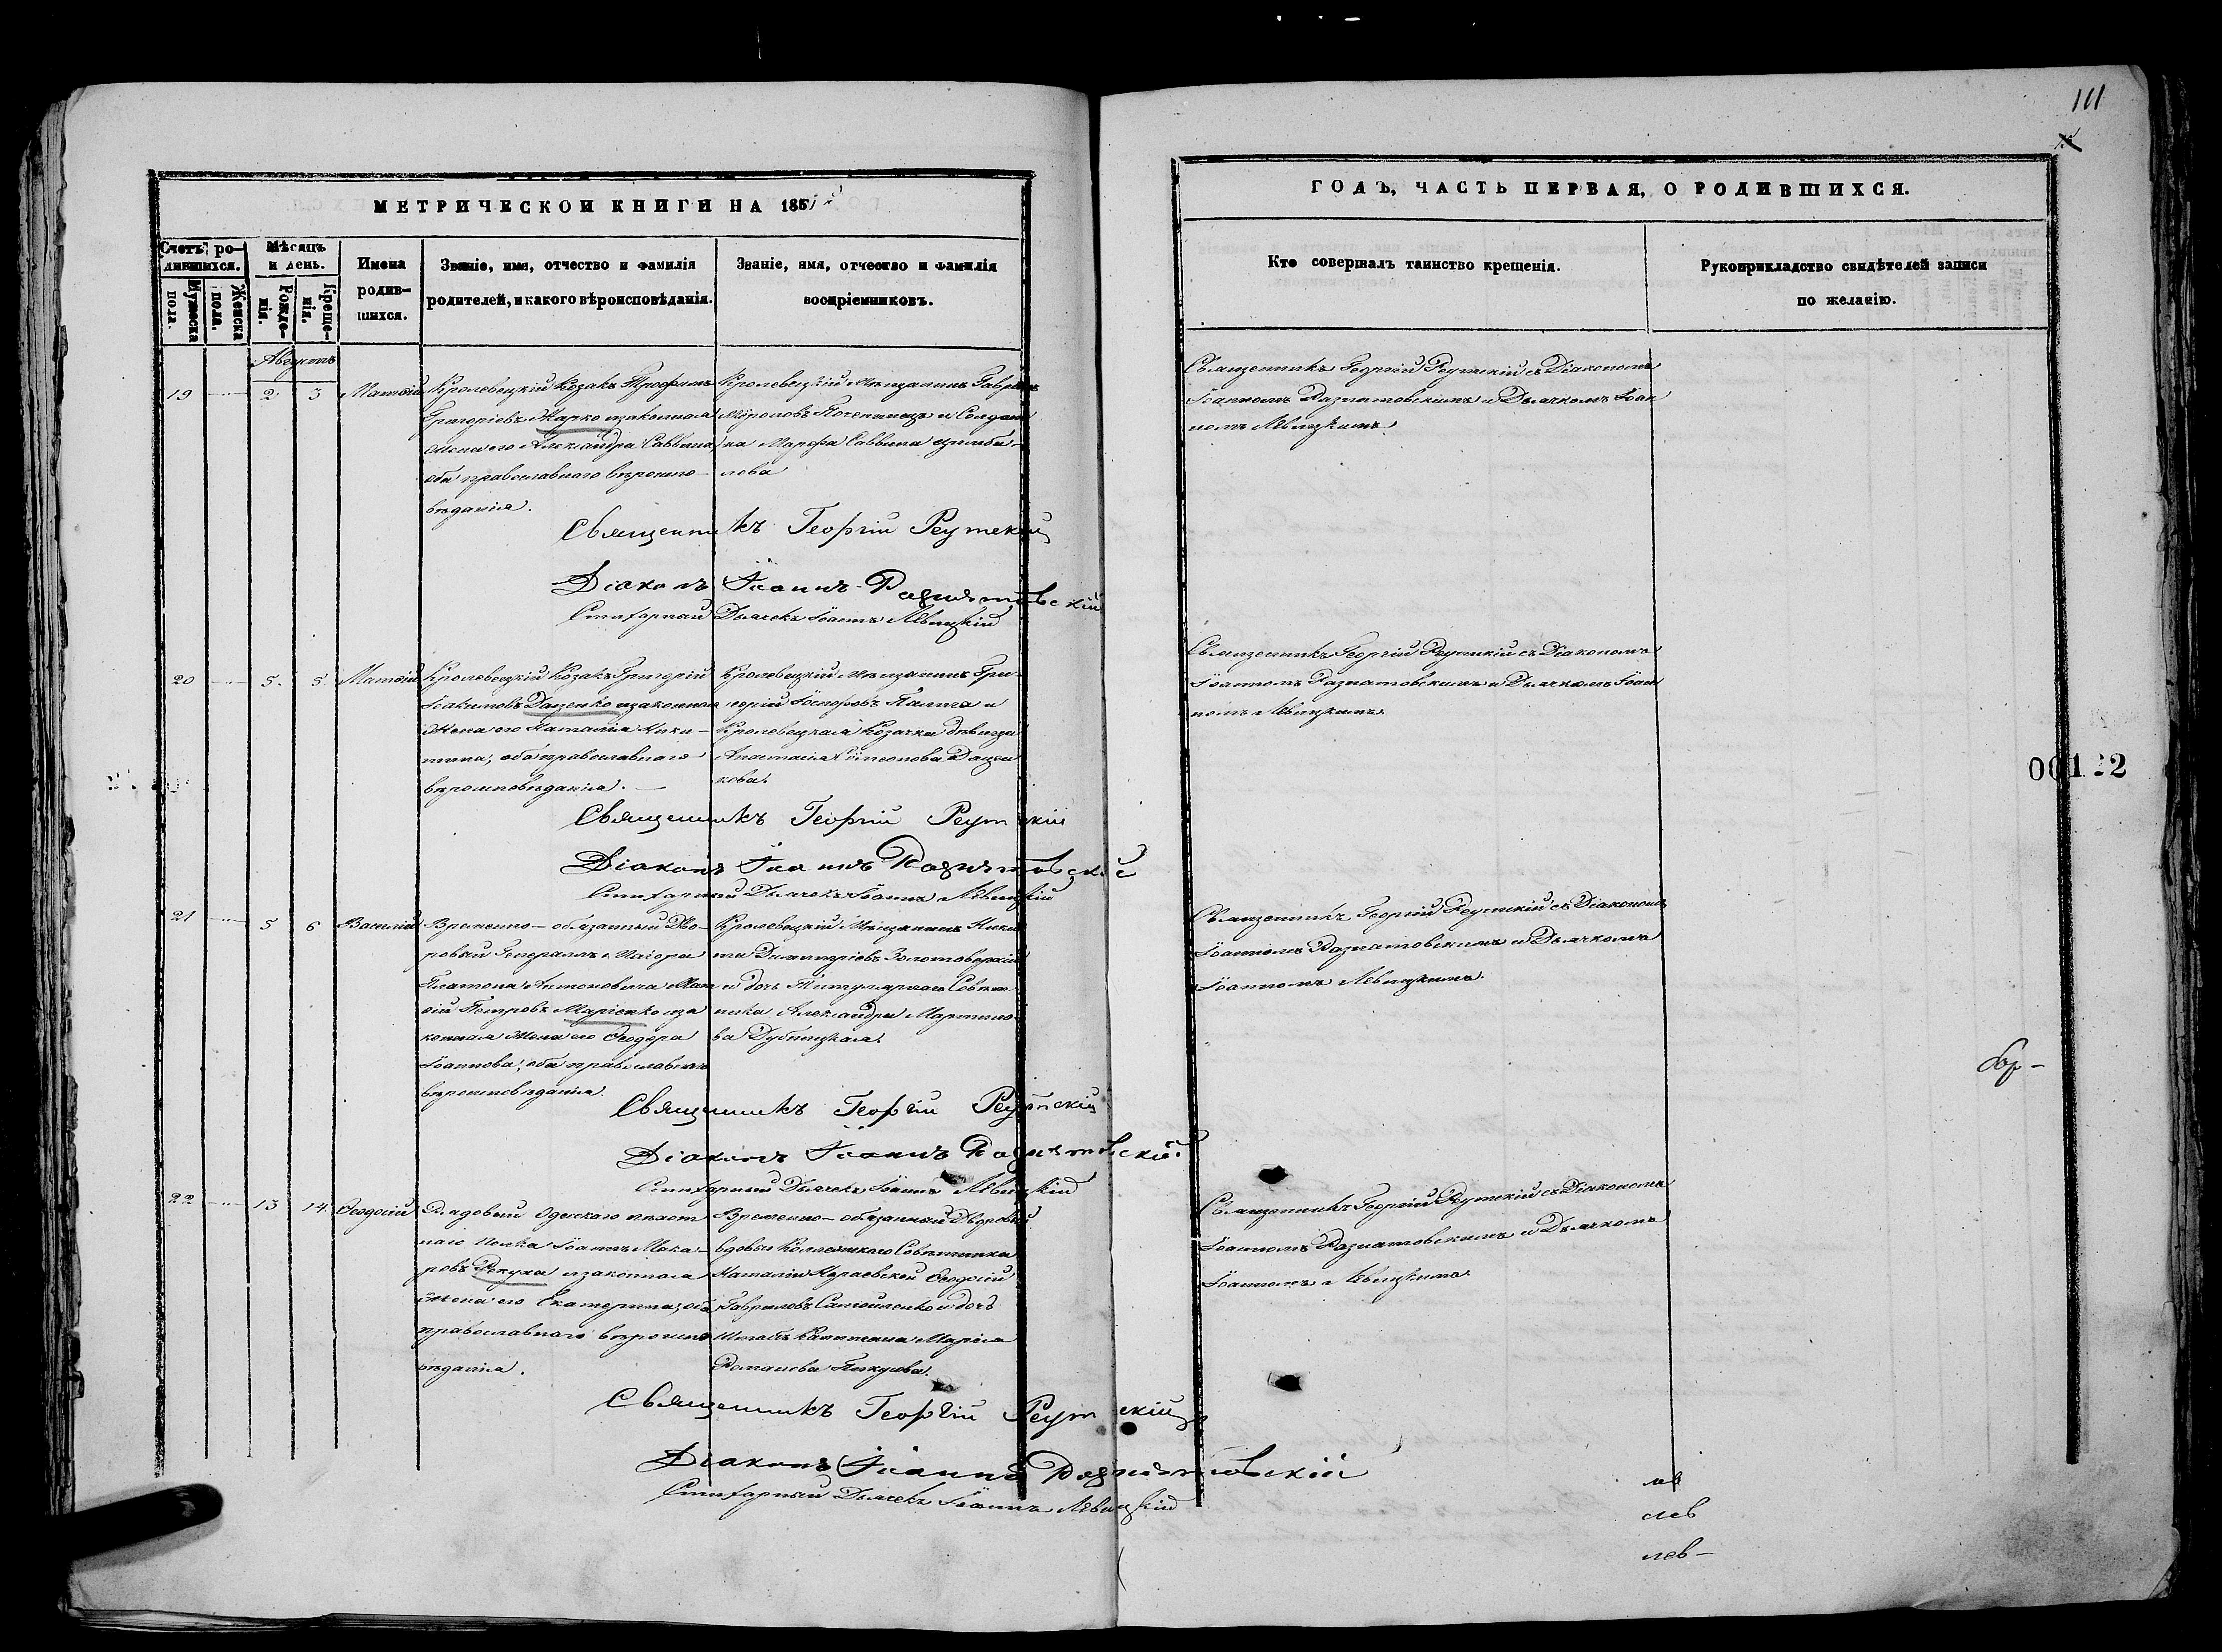 111
МЕТРИЧЕСКОЙ КНИГИ НА 185
ГОДЪ, ЧАСТЬ ПЕРВАЯ, О РОДИВШИХСЯ.
Счетъ ро-
дившихся.
Мужеска
пола.
Женска
пола.
Мѣсяцъ
и день.
Рожде-
нія.
Креще-
нія.
Имена
родив-
шихся.
Званіе, имя, отчество и фамилія
родителей, и какого вѣроисповѣданія.
Званіе, имя, отчество и фамилія
воспріемниковъ.
Кто совершалъ таинство крещенія.
Рукоприкладство свидѣтелей записи
по желанію.
Августъ
19
2
3
Матѳій
Кролевецкій Козакъ Трофимъ
Григоріевъ Марко изаконная
жена его Александра Саввина,
оба православнаго вѣроиспо-
вѣданія.
Кролевецкій мѣщанинъ Гаврі
и Солдат
ка Марфа Саввина
лова
Священникъ Георгій Реутскій съ Діакономъ
Іоанномъ Разнатовскимъ и Дьячкомъ Іоан
номъ Левицкимъ.
Священникъ Георгій Реутскій
Діаконъ Іоаннъ Разнатовскій
Стихарный Дьячекъ Іоаннъ Левицкій
20
5.
5.
Матѳій
Кролевецкій Козакъ Григорій
Іоакимовъ Даценко изаконная
Жена его Наталія Ники-
тина, оба православнаго
вѣроисповѣданія.
Кролевецкій мѣщанинъ Гри-
горій и
Кролевецкая Козачка дѣвица
Анастасія Симеонова Дацен
кова.
Священникъ Георгій Реутскій съ Діакономъ
Іоанномъ Разнатовскимъ и Дьячкомъ Іоан
номъ Левицкимъ.
Священникъ Георгій Реутскій
Діаконъ Іоаннъ Разнатовскій
Стихарный Дьячекъ Іоаннъ Левицкій
00122
21
5
6
Василій
Временно-обязанный Дво-
ровый Генералъ Маіора
Платона Антоновича Мат
ѳій Петровъ Маріенко иза
конная Жена его Ѳеодора
Іоаннова, оба православнаго
вѣроисповѣданія.
Кролевецкій Мѣщанинъ Ники
та Димитріевъ
и дочь Титулярнаго Совѣт
ника Александра Мартино
ва Дубницкая.
Священникъ Георгій Реутскій съ Діакономъ
Іоанномъ Разнатовскимъ и Дьячкомъ
Іоанномъ Левицкимъ.
Священникъ Георгій Реутскій
Діаконъ Іоаннъ Разнатовскій
Стихарный Дьячекъ Іоаннъ Левицкій
22
13
14.
Ѳеодосій
Рядовый Одесскаго пѣхот
наго Полка Іоаннъ Мака-
ровъ Рекуха изаконная
Жена его Екатерина, оба
православнаго вѣроиспо
вѣданія.
Временно-обязанный Дворовый
вдовы Коллежскаго Совѣтника
Наталіи Ѳеодосій
Гавриловъ Самойленко и дочь
Штабсъ Капитана Марія
Романова
Священникъ Георгій Реутскій съ Діакономъ
Іоанномъ Разнатовскимъ и Дьячкомъ
Іоанномъ Левицкимъ.
Священникъ Георгій Реутскій
Діаконъ Іоаннъ Разнатовскій
Стихарный Дьячекъ Іоаннъ Левицкій
лев
лев-